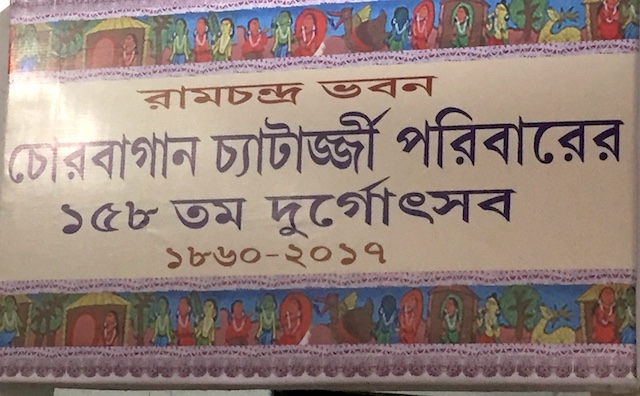 রামচন্দ্র ভবন
চোরবাগান চ্যাটার্জ্জী পরিবারের
১৫৮ তম দুর্গোৎসব
১৮৬০-২০১৭